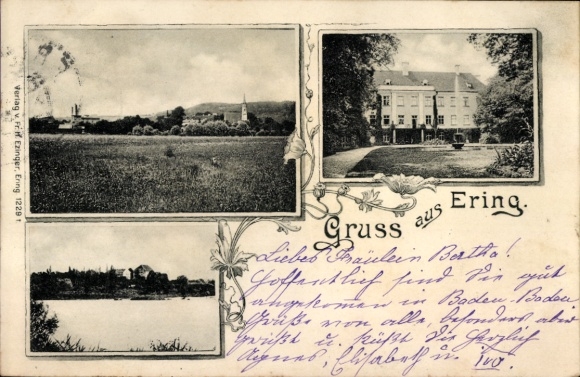 Gruss aus Ering.
Liebes Fräulein Bertha!
Hoffentlich sind Sie gut
angekommen in Baden-Baden
Grüße von alle, besonders aber
grüßt u. küßt Sie herzlich
Agnes, Elisabeth u. Ivo.
Verlag v. Ering 1229